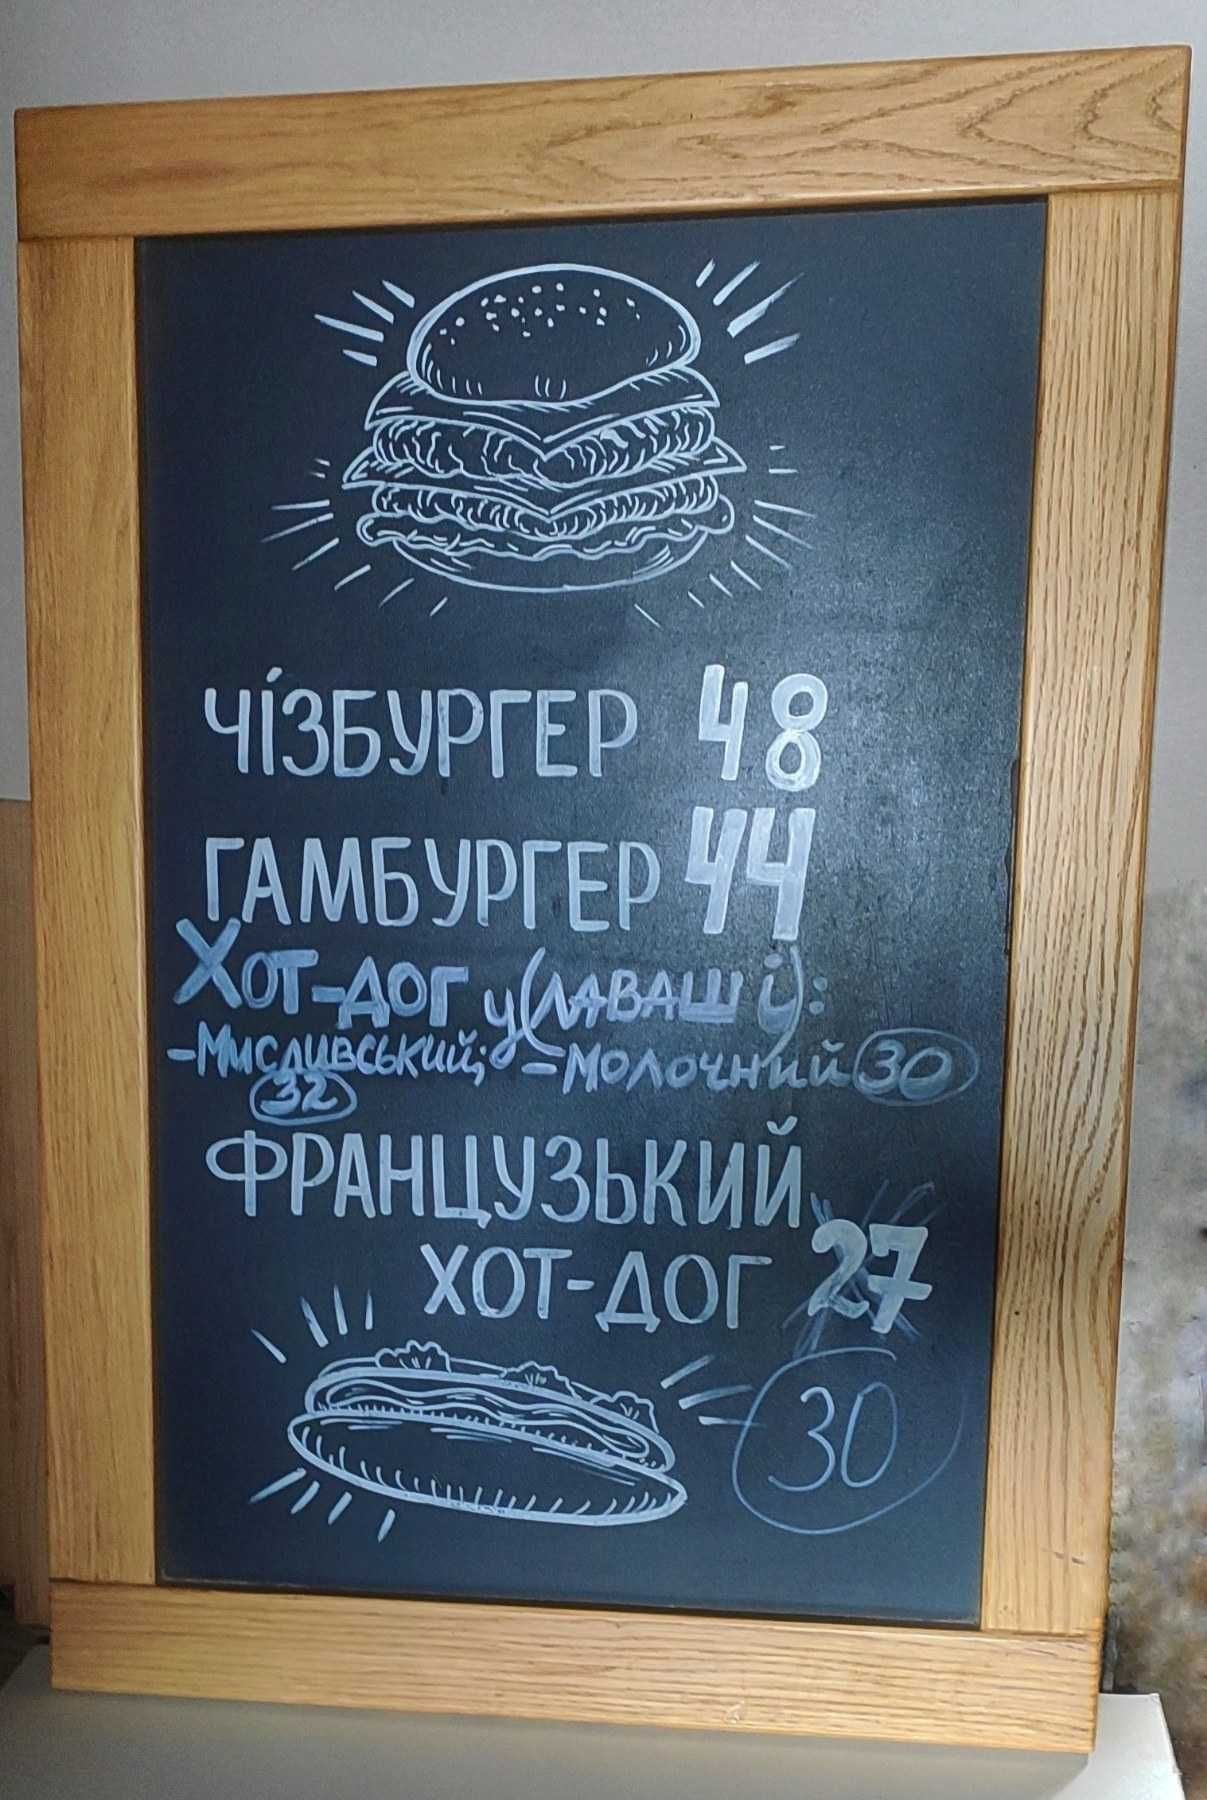 ЧІЗБУРГЕР 48
ГАМБУРГЕР 44
Хот-дог у (лаваші):
-Мисливський; -Молочний 30
32
ФРАНЦУЗЬКИЙ
ХОТ-ДОГ 27
30